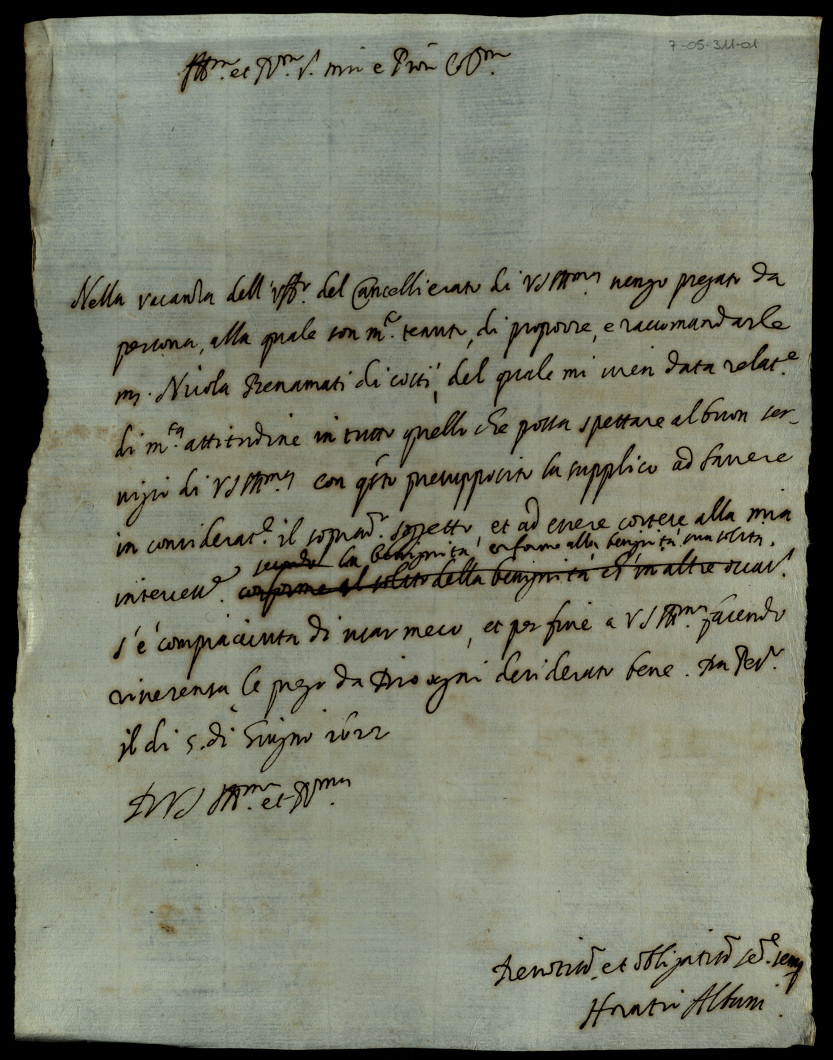 7-05-311-01
Ill.mo et R.mo S. mio e Pron Col.mo
Nella vacanza dell'uff.o del Cancellierato di VS Ill.ma vengo pregato da
persona, alla quale son m.to tenuto, di proporre, e raccomandarle
m. Nicola Benamati di costì, del quale mi vien data relat.e
di m.ta attitudine in tutto quello che possa spettare al buon ser-
vizio di VS Ill.ma con q.sto presupposito la supplico ad havere
in considerat.e il soprad.o soggetto, et ad essere cortese alla mia
secondo la benignità, conforme alla benignità sua solita.
intercess.e conforme al solito della benignità ch'in altre occas.i
s'è compiaciuta di usar meco, et per fine a VS Ill.ma facendo
riverenza le prego da Dio ogni desiderato bene. Da
il di 5. di Giugno 1622
D VS Ill.ma et R.ma
Devotiss.o et obligatiss.o se.re
Horatio Albani